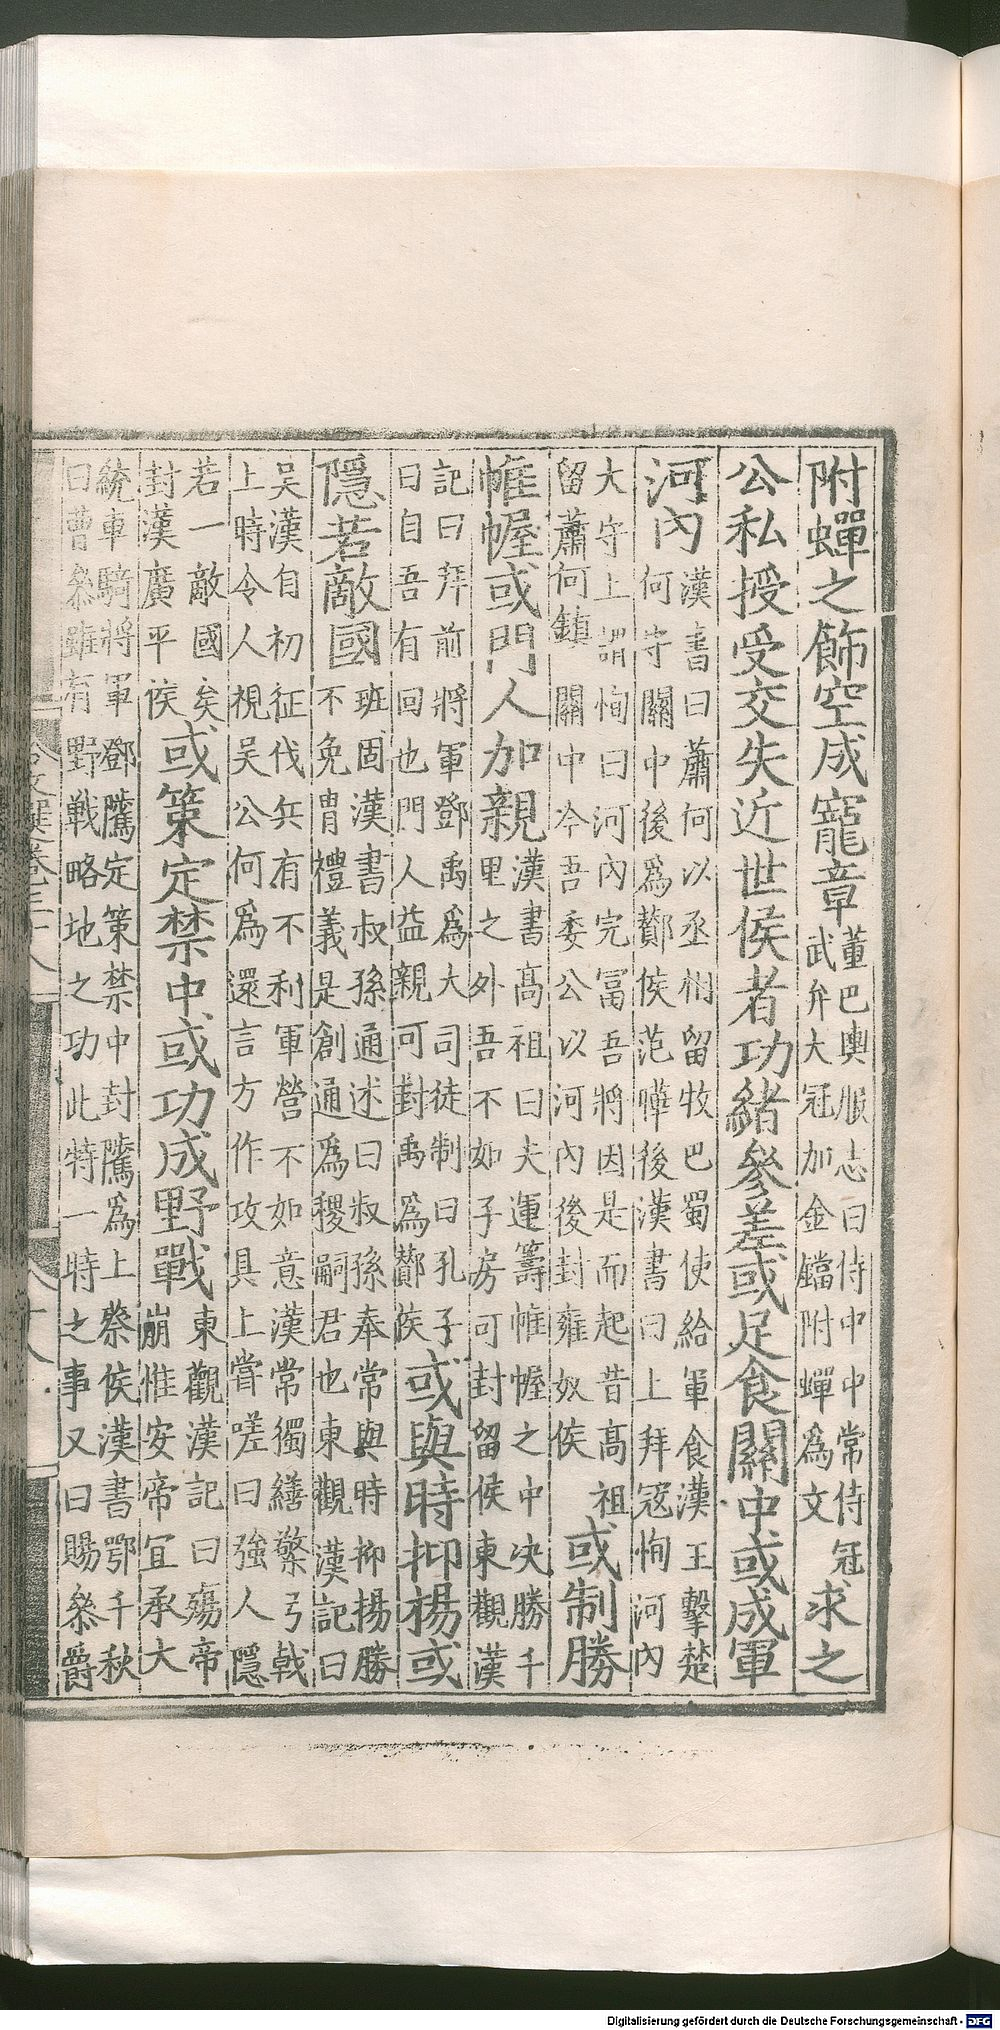 附蟬之飾空成寵章董巴輿服志曰侍中中常侍冠
武弁大冠加金鐺附蟬為文求之
公私授受交失近世侯者功緒參差或足食關中或成軍
河內漢書曰蕭何以丞相留牧巴蜀使給軍食漢王擊楚
何守關中後為酇侯范曄後漢書曰上拜寇恂河內
大守上謂恂曰河內完冨吾將因是而起昔髙祖
留蕭何鎮關中今吾委公以河內後封雍奴侯或制勝
帷幄或門人加親漢書髙祖曰夫運籌帷幄之中決勝千
里之外吾不如子房可封留侯東觀漢
記曰拜前將軍鄧禹為大司徒制曰孔子
曰自吾有回也門人益親可對禹為酇侯或與時抑揚或
隱若敵國班固漢書叔孫通述曰叔孫奉常與時抑揚勝
不免冑禮義是創通為稷嗣君也東觀漢記曰
吳漢自初征伐兵有不利軍營不如意漢常獨繕檠弓戟
上時令人視吳公何為還言方作攻具上嘗嗟曰強人隱
若一敵國矣
封漢廣平侯或策定禁中或功成野戰東觀漢記曰殤帝
崩惟安帝宜承大
統車騎將軍鄧騭定策禁中封騭為上蔡侯漢書鄂千秋
曰曹叅雖有野戰略地之功此特一時之事又曰賜叅爵
Digitalisierung gefördert durch die Deutsche Forschungsgemeinschaft - DFG